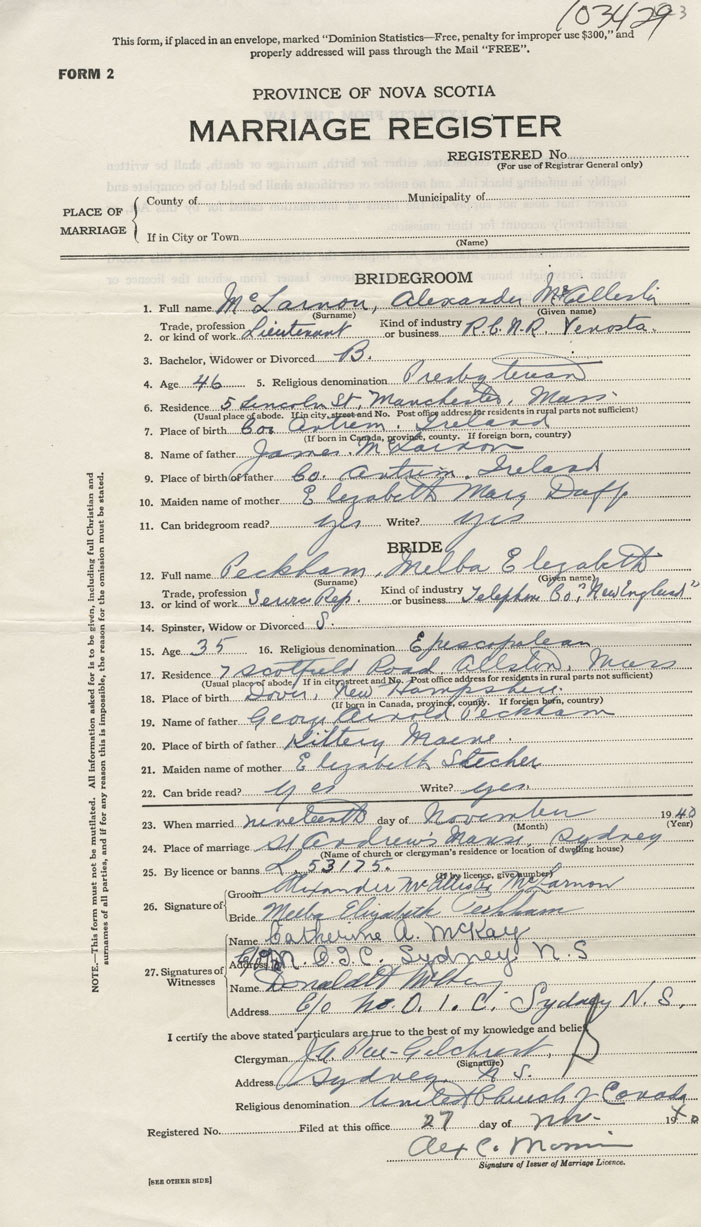 103429
This form, if placed in an envelope, marked "Dominion Statistics—Free, penalty for improper use $300," and
properly addressed will pass through the Mail "FREE".
FORM 2
PROVINCE OF NOVA SCOTIA
MARRIAGE REGISTER
REGISTERED No.
(For use of Registrar General only)
PLACE OF MARRIAGE
County of Municipality of
If in City or Town
(Name)
BRIDEGROOM
1. Full name McLarnon, Alexander McAllester
(Surname) (Given name)
2. Trade, profession or kind of work Lieutenant Kind of industry or business R.C.N.R. Venosta.
3. Bachelor, Widower or Divorced B.
4. Age 46 5. Religious denomination Presbyterian
6. Residence 5 Lincoln St, Manchester, Mass.
(Usual place of abode. If in city, street and No. Post office address for residents in rural parts not sufficient)
7. Place of birth Co. Antrim. Ireland
(If born in Canada, province, county. If foreign born, country)
8. Name of father James McLarnon
9. Place of birth of father Co. Antrim. Ireland
10. Maiden name of mother Elizabeth Mary Duff
11. Can bridegroom read? yes Write? yes
BRIDE
12. Full name Peckham, Melba Elizabeth
(Surname) (Given name)
13. Trade, profession or kind of work Service Rep. Kind of industry or business Telephone Co, "New England"
14. Spinster, Widow or Divorced S.
15. Age 35 16. Religious denomination Episcopalean
17. Residence 7 Scotfield Road Allston, Mass
(Usual place of abode. If in city street and No. Post office address for residents in rural parts not sufficient)
18. Place of birth Dover, New Hampshire.
(If born in Canada, province, county. If foreign born, country)
19. Name of father George Arnold Peckham
20. Place of birth of father Kittery Maine.
21. Maiden name of mother Elizabeth Stecher
22. Can bride read? yes Write? yes.
23. When married nineteenth day of November 1940
(Month) (Year)
24. Place of marriage St Andrew's Manse, Sydney
(Name of church or clergyman's residence or location of dwelling house)
25. By licence or banns L 53175.
(If by licence, give number)
26. Signature of
Groom Alexander McAllister McLarnon
Bride Melba Elizabeth Peckham
27. Signatures of Witnesses
Name Catherine A. McKay
Address Sydney. N.S
Name Donald
Address C/o N.O.I.C. Sydney N.S.
I certify the above stated particulars are true to the best of my knowledge and belief
Clergyman Gilchrist,
(Signature)
Address Sydney N.S.
Religious denomination United Church of Canada
Registered No. Filed at this office 27 day of Nov- 19
Alex C.
Signature of Issuer of Marriage Licence.
[SEE OTHER SIDE]
NOTE.—This form must not be mutilated. All information asked for is to be given, including full Christian and
surnames of all parties, and if for any reason this is impossible, the reason for the omission must be stated.